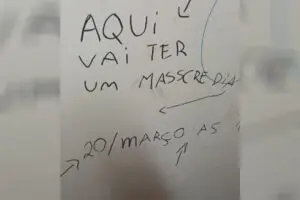 AQUI
VAI TER
UM MASSCRE DIA
20/MARÇO AS